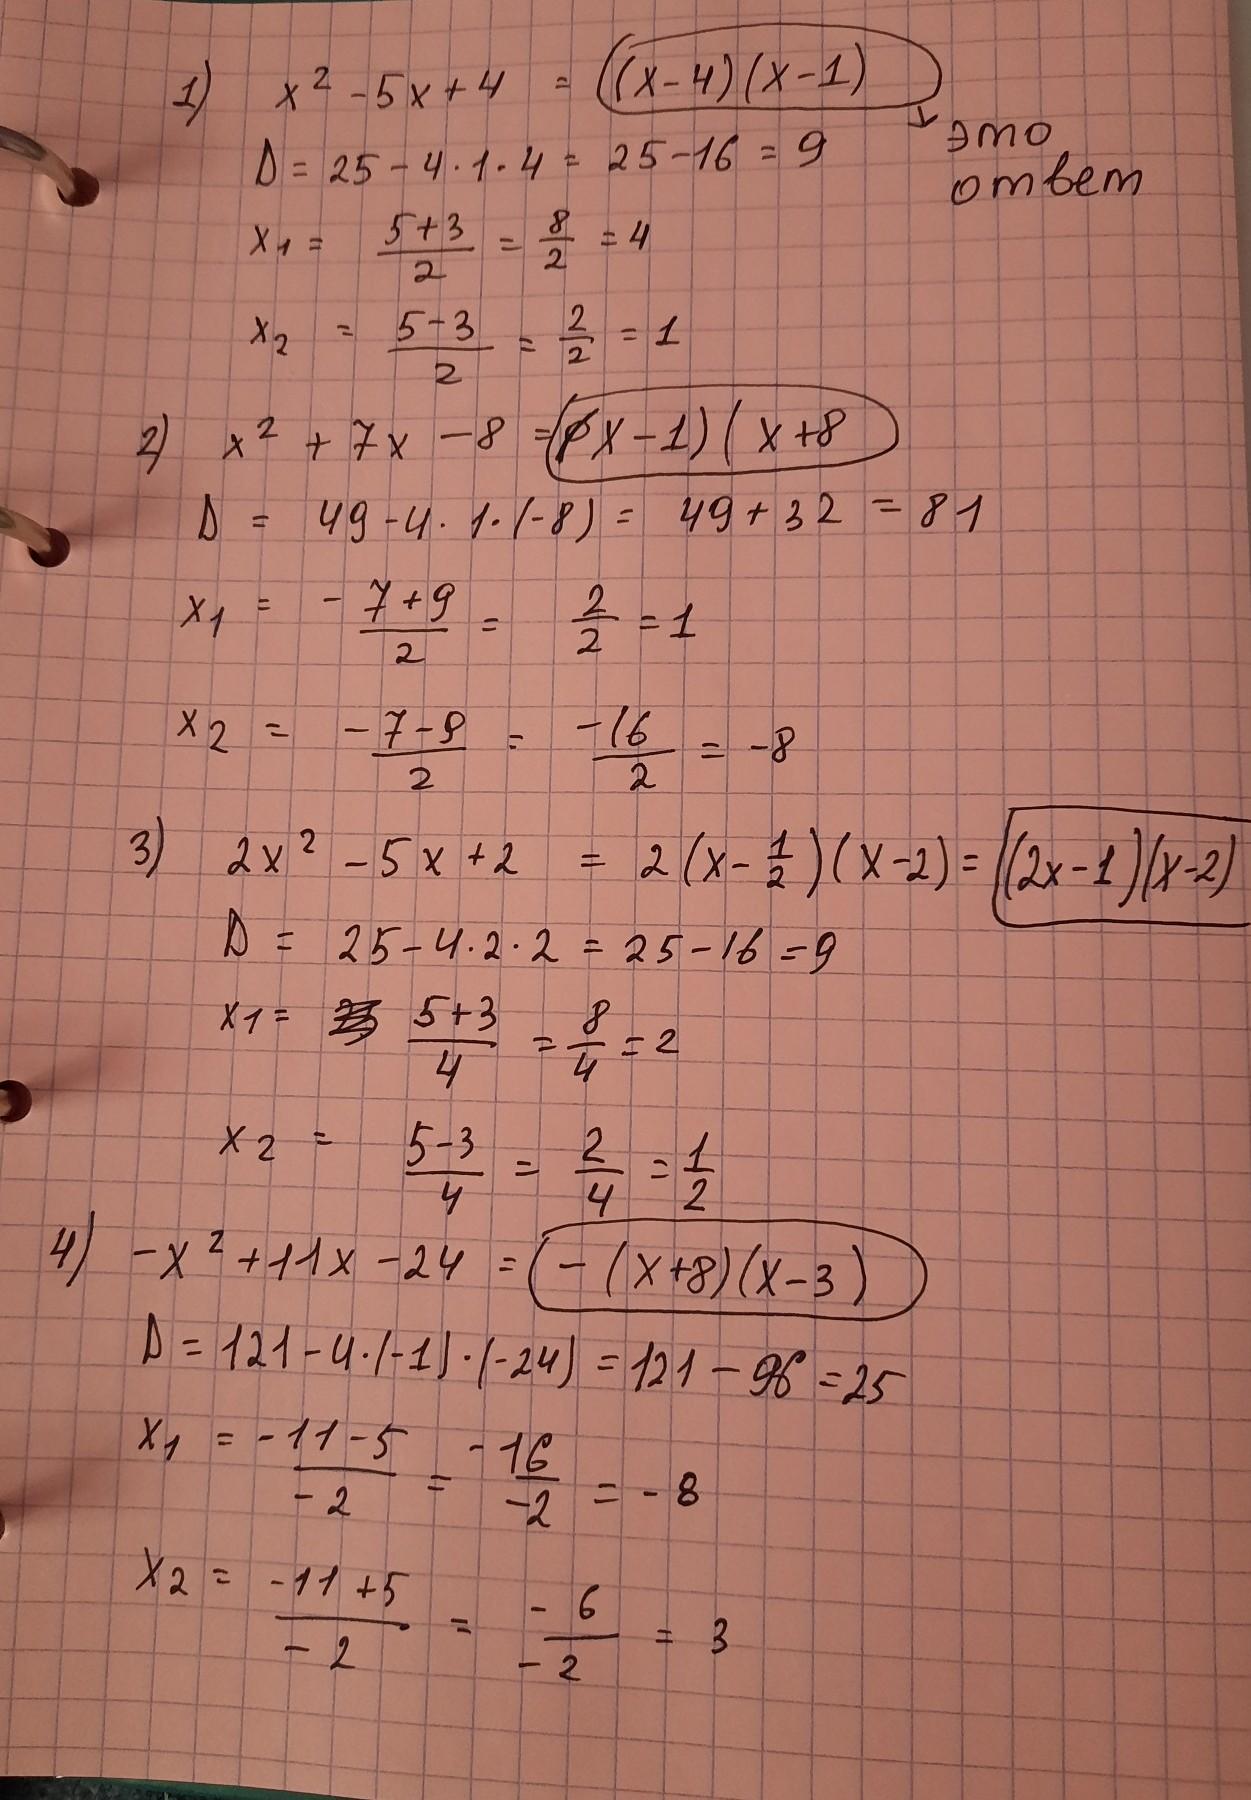 1) x² - 5x + 4 = ((x - 4)(x - 1)
это
D = 25 - 4 · 1 · 4 = 25 - 16 = 9
ответ
x₁ = (5 + 3)/2 = 8/2 = 4
x₂ = (5 - 3)/2 = 2/2 = 1
2) x² + 7x - 8 = (x - 1)(x + 8
D = 49 - 4 · 1 · (-8) = 49 + 32 = 81
x₁ = (-7 + 9)/2 = 2/2 = 1
x₂ = (-7 - 9)/2 = -16/2 = -8
3) 2x² - 5x + 2 = 2(x - 1/2)(x - 2) = (2x - 1)(x - 2)
D = 25 - 4 · 2 · 2 = 25 - 16 = 9
x₁ = (5 + 3)/4 = 8/4 = 2
x₂ = (5 - 3)/4 = 2/4 = 1/2
4) -x² + 11x - 24 = -(x + 8)(x - 3)
D = 121 - 4 · (-1) · (-24) = 121 - 96 = 25
x₁ = (-11 - 5)/-2 = -16/-2 = -8
x₂ = (-11 + 5)/-2 = -6/-2 = 3